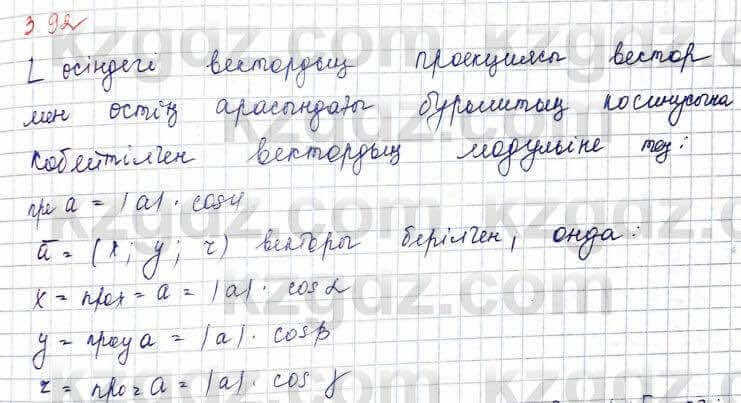 392
L осіндегі вектордың проекциясы вектор
мен остің арасындағы бұрыштың косинусына
кобейтілген вектордың модуліне тең:
пре a = |a| · cos φ
ā = (x; y; z) векторы берілген, онда:
x = прох = a = |a| · cos α
y = проу a = |a| · cos β
z = проz a = |a| · cos γ
kzgdz.com